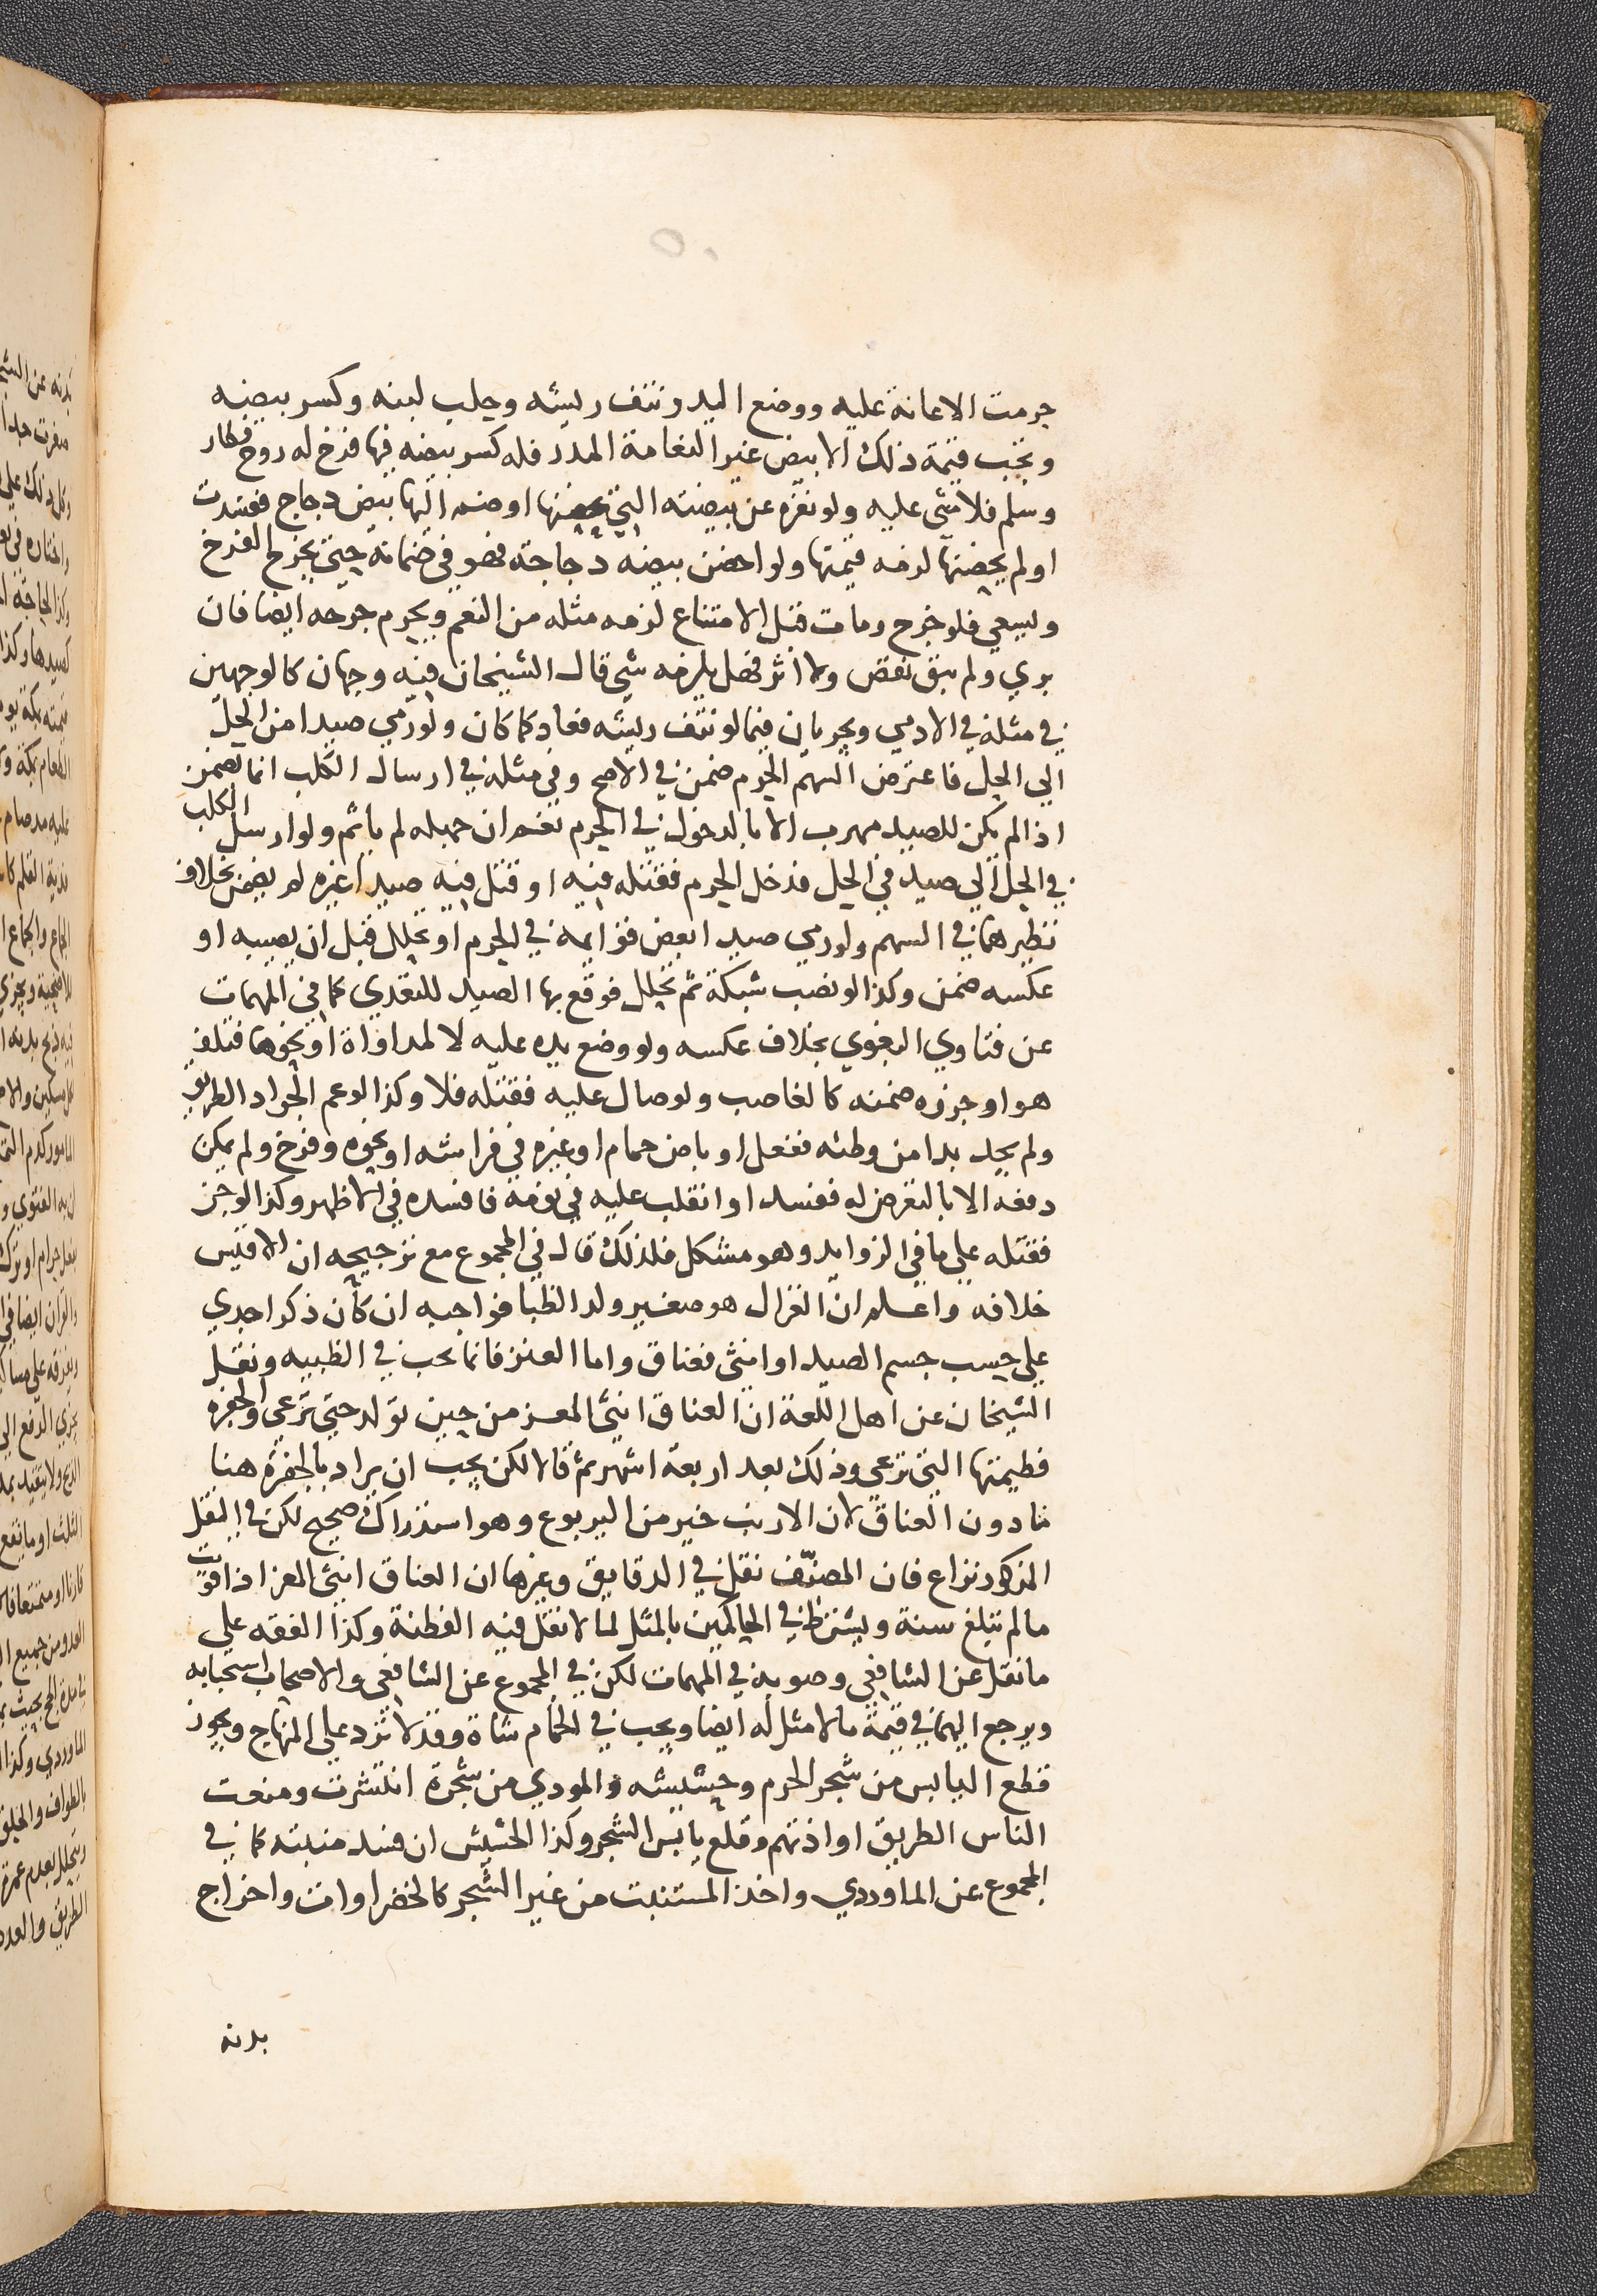 حرمت الاعانة عليه ووضع اليد ونتف ريشه وحلب لبنه وكسر بيضه
وتجب قيمة ذلك الا بيض غير النعامة المذر فله كسر بيضه فيها فرخ له روح فطار
وسلم فلا شي عليه ولو نفره عن بيضته التي يحضنها او ضم اليها بيض دجاج ففسدت
او لم يحضنها لزمه قيمتها ولو احضن بيضه دجاجة فهو في ضمانه حتى يخرج الفرخ
ويسعي فلو خرج ومات قبل الامتناع لزمه مثله من النعم ويحرم جرحه ايضا فان
بري ولم يبق نقص ولا اثر فهل يلزمه شي قال الشيخان فيه وجهان كالوجهين
في مثله في الادمي ويجريان فيما لو نتف ريشه فعاد كما كان ولو رمي صيدا من الحل
الي الحل فاعترض السهم الحرم ضمن في الاصح وفي مثله في ارسال الكلب انما يضمن
اذا لم يكن للصيد مهرب الا بالدخول في الحرم نعم ان جهله لم ياثم ولو ارسل الكلب
في الحل الي صيد في الحل فدخل الحرم فقتله فيه او قتل فيه صيدا غيره لم يضمن بخلاف
نظيرهما في السهم ولو رمي صيدا بعض قوايمه في الحرم او تحلل قبل ان يصيبه او
عكسه ضمن وكذا لو نصب شبكة ثم تحلل فوقع بها الصيد للتعدي كما في المهمات
عن فتاوي البغوي بخلاف عكسه ولو وضع يده عليه لا لمداواة او نحوها فتلف
هو او جزوه ضمنه كالغاصب ولو صال عليه فقتله فلا وكذا لو عم الجراد الطريق
ولم يجد بدا من وطئه ففعل او باض حمام او غيره في فراشه او نحوه وفرخ ولم يمكن
دفعه الا بالتعرض له ففسد او انقلب عليه في نومه فافسده في الاظهر وكذا لو جن
فقتله علي ما في الزوايد وهو مشكل فلذلك قال في المجموع مع ترجيحه ان الاقيس
خلافه واعلم ان الغزال هو صغير ولد الظبا فواجبه ان كان ذكرا جدي
علي حسب جسم الصيد او انثى فعناق واما العنز فانما تجب في الظبيه ونقل
الشيخان عن اهل اللغة ان العناق انثى المعز من حين تولد حتى ترعي والجفره
فطيمتها التي ترعي وذلك بعد اربعة اشهر ثم قالا لكن يجب ان يراد بالجفرة هنا
ما دون العناق لان الارنب خير من اليربوع وهو استدراك صحيح لكن في النقل
المذكور نزاع فان المصنف نقل في الدقايق وغيرها ان العناق انثى المعز اذا قويت
ما لم تبلغ سنة ويشترط في الحاكمين بالمثل لما لا نقل فيه الفطنة وكذا الفقه علي
ما نقل عن الشافعي وصوبه في المهمات لكن في المجموع عن الشافعي والاصحاب استحبابه
ويرجع اليهما في قيمة ما لا مثل له ايضا ويجب في الحمام شاة وقد لا ترد علي المنهاج ويجوز
قطع اليابس من شجر الحرم وحشيشه والموذي من شجرة انتشرت ومنعت
الناس الطريق او اذتهم وقلع يابس الشجر وكذا الحشيش ان فسد منبته كما في
المجموع عن الماوردي واخذ المستنبت من غير الشجر كالخضراوات واخراج
بدنه